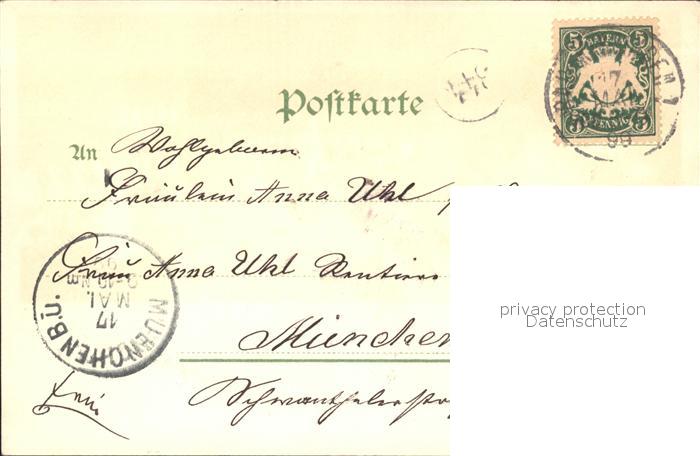 5 BAYERN 5
PFENNIG
17
99
344
Postkarte
An Wohlgeboren
Fräulein Anna Uhl
Frau Anna Uhl Rentiers
MUENCHEN B.Ü.
17
MAI
München
Schwanthalerstr
frei
privacy protection
Datenschutz